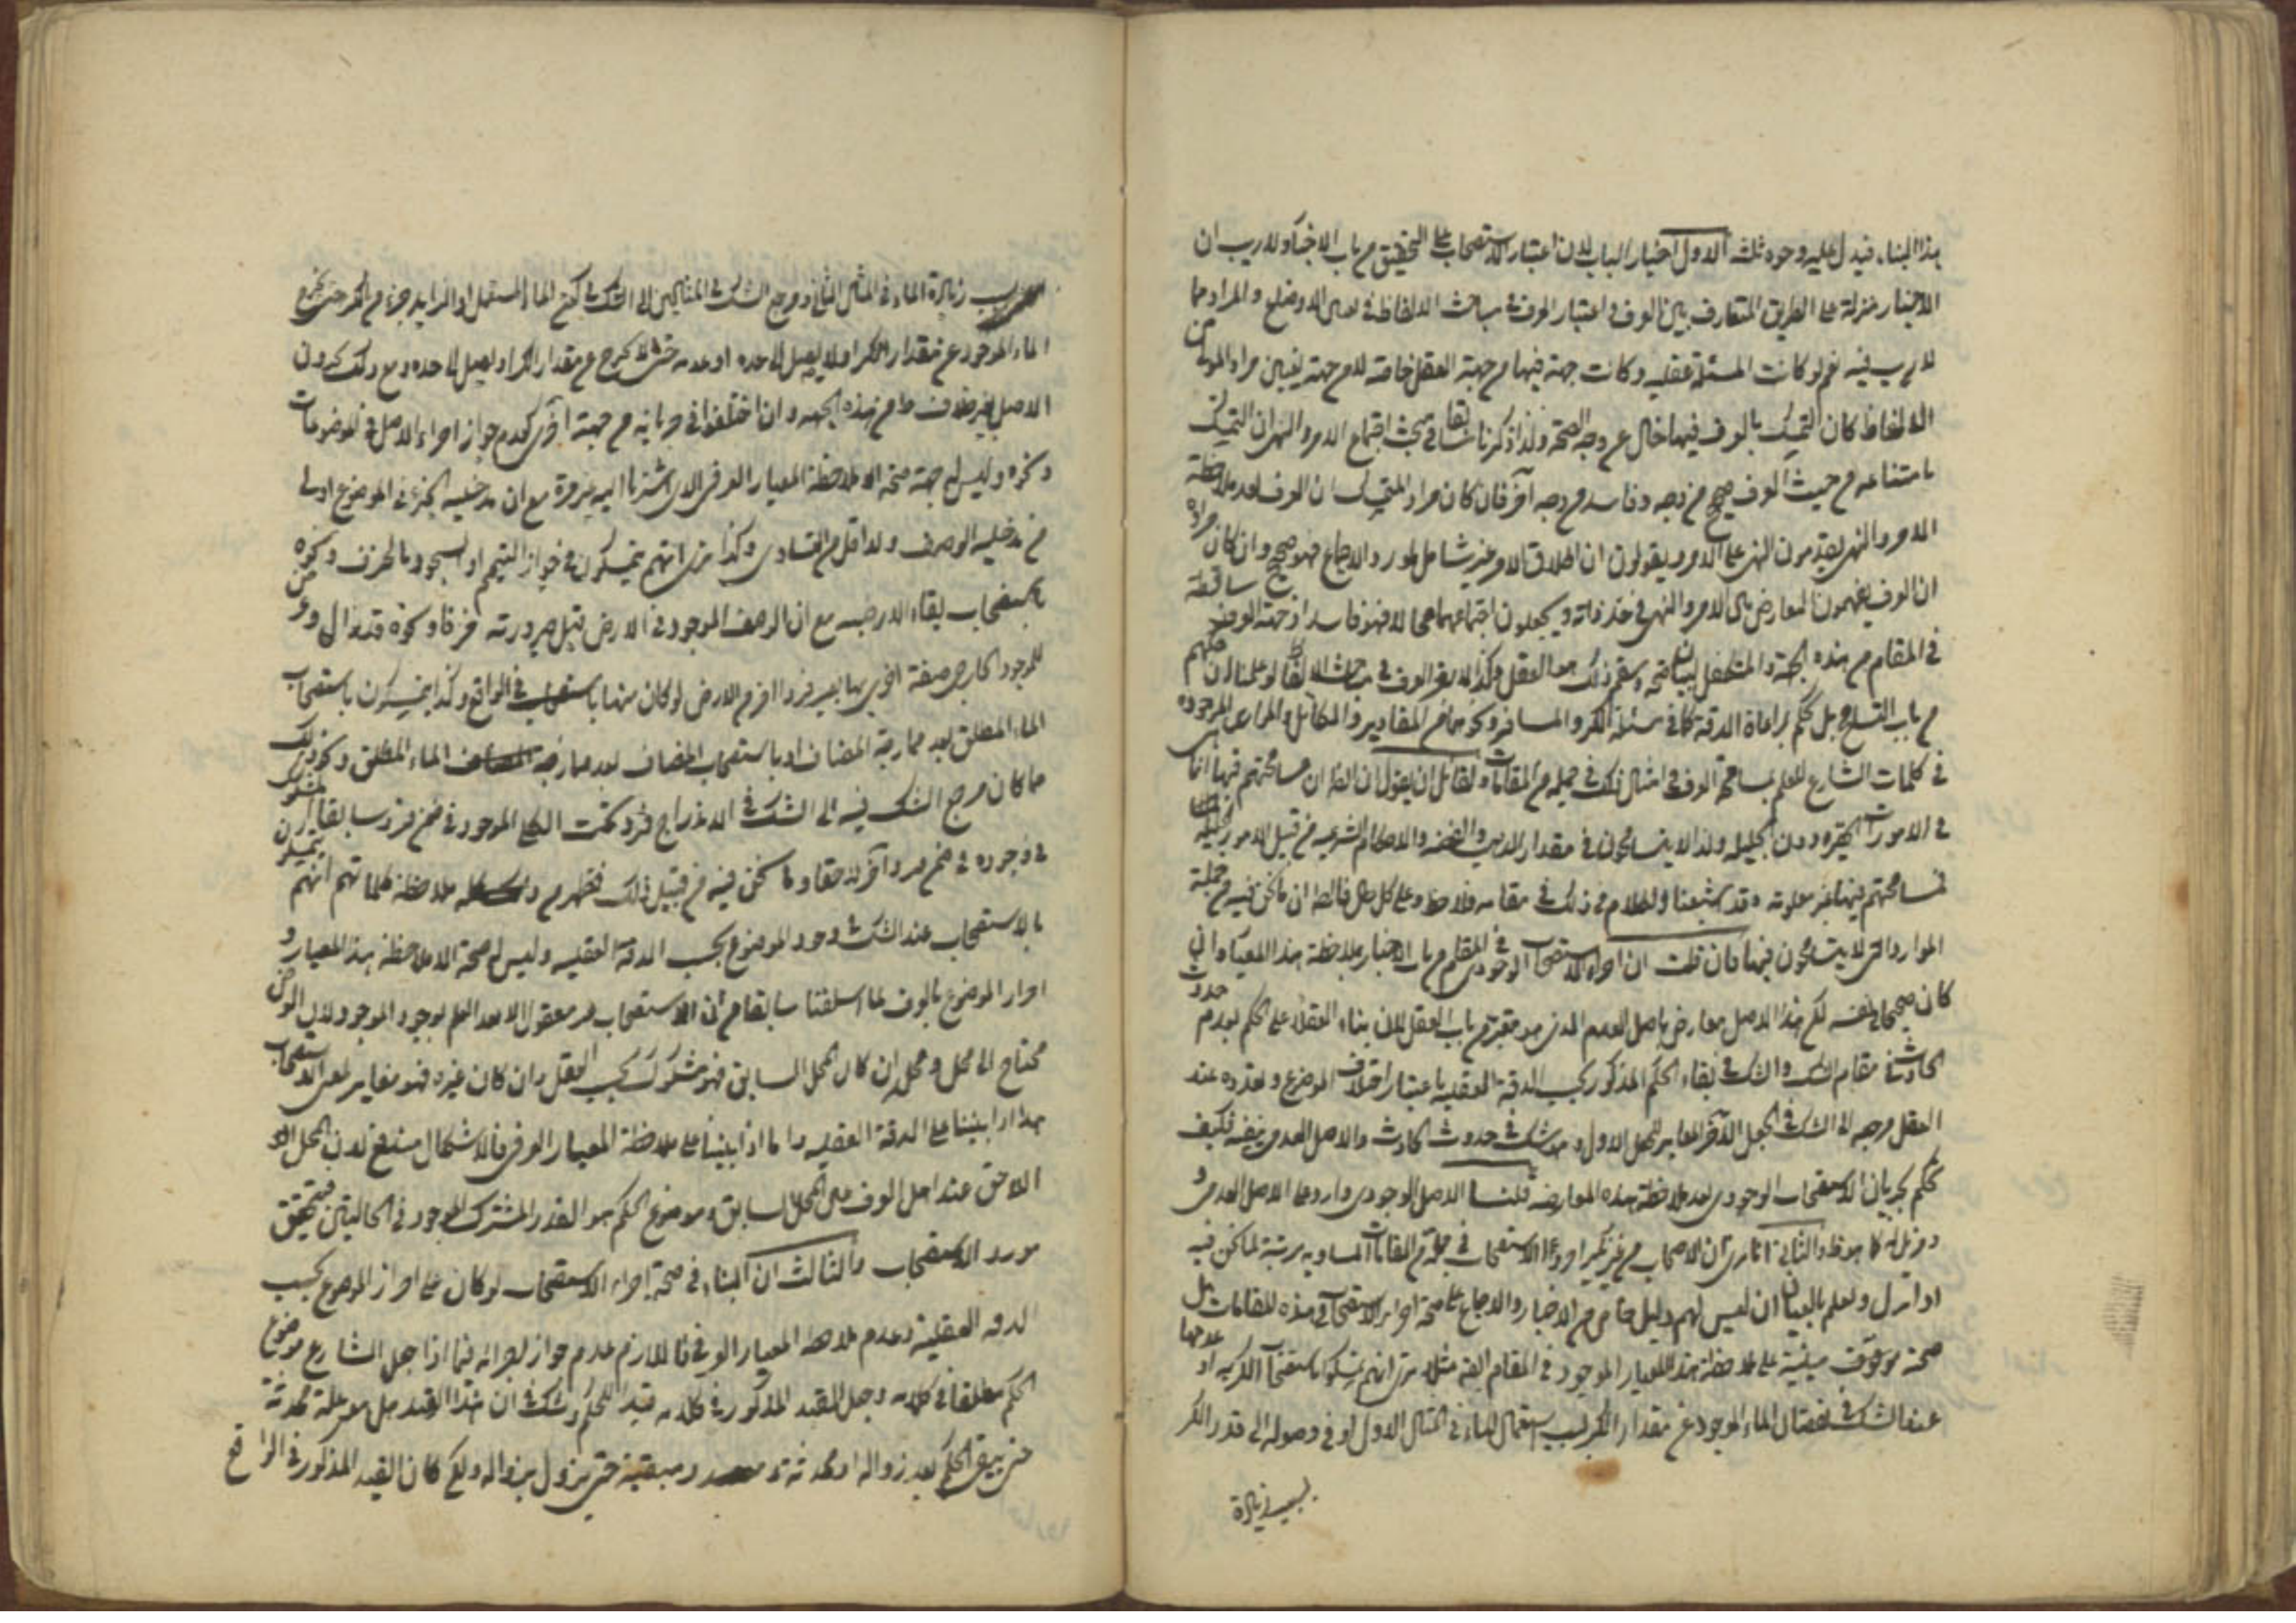 هذا البناء فيدل عليه وجوه ثلثة الاول اخبار الباب لان اعتبار الاستصحاب على التحقيق من باب الاخبار ولا ريب ان
الاخبار منزلة على الطريق المتعارف بين العرف واعتبار العرف في مباحث الالفاظ في تعيين الاوضاع والمراد مما
لا ريب فيه نعم لو كانت المسئلة عقلية وكانت جهة فيها من جهة العقل خاصة لا من جهة تعيين مراد الموالى من
الالفاظ كان التمسك بالعرف فيها خال عن وجه الصحة ولذا ذكرنا سابقا في بحث اجتماع الامر والنهى ان التمسك
بامتناعه من حيث العرف صحيح من وجه وفاسد من وجه آخر فان كان مراد المتمسك ان العرف بعد ملاحظة
الامر والنهى يقدمون النهى على الامر ويقولون ان اطلاق الامر غير شامل لمورد الاجماع فهو صحيح وان كان مراده
ان العرف يفهمون التعارض بين الامر والنهى في حد ذاته ويجعلون اجتماعهما محالا فهو فاسد اذ جهة العرف ساقطة
في المقام من هذه الجهة والمتكفل لبيان صحته وسقم ذلك هو العقل وكذا لا يعتبر العرف في مباحث الالفاظ لو علمنا ان حكمهم
من باب التسامح بل نحكم بمراعاة الدقة كما في مسئلة الكر والمسافر ونحوهما من المقادير والمكائيل والمراعى الموجودة
في كلمات الشارع للعلم بمسامحة العرف في امثال ذلك في جملة من المقامات ولقائل ان يقول ان الظ ان مسامحتهم فيها انما هى
في الامورات الحقيرة دون الجليلة ولذا لا يتسامحون في مقدار الذهب والفضة والاحكام الشرعية من قبيل الامور الجليلة
فمسامحتهم فيها غير معلومة وقد اشبعنا الكلام في ذلك في مقامه فلاحظ وعلى كل حال فالظ ان ما نحن فيه من جملة
الموارد التى لا يتسامحون فيها فان قلت ان اجراء الاستصحاب الوجودى في المقام من باب الاخبار بملاحظة هذا المعيار وان
كان صحيحا في نفسه لكن هذا الاصل معارض باصل العدم الذى هو معتبر من باب العقل لان بناء العقلاء على الحكم بعدم حدوث
الحادث في مقام الشك والشك في بقاء الحكم المذكور بحسب الدقة العقلية باعتبار اختلاف الموضوع وتعدده عند
العقل مرجعه الى الشك في الجعل الآخر المغاير للجعل الاول وهو شك في حدوث الحادث والاصل العدمى ينفيه فكيف
نحكم بجريان الاستصحاب الوجودى بعد ملاحظة هذه المعارضة قلنا الاصل الوجودى وارد على الاصل العدمى و
ومزيل له كما هو ظ والثانى انا نرى ان الاصحاب من غير نكير اجروا الاستصحاب في جملة من المقامات المساوية مرتبة لما نحن فيه
او انزل ونعلم بالعيان ان ليس لهم دليل خاص من الاخبار والاجماع على صحة اجراء الاستصحاب في هذه المقامات بل
صحته موقوفة مبنية على ملاحظة هذا المعيار الموجود في المقام الفة مثلا نرى انهم تمسكوا باستصحاب الكرية او عدمها
عند الشك في نقصان الماء الموجود عن مقدار الكر بسبب استعمال الماء في المثال الاول او في وصوله الى قدر الكر
بسبب زيادة
بسبب زيادة الماء في المثال الثانى ومرجع الشك في المثالين الى الشك في كون الماء المستعمل او الزايد جزء من الكر حتى يخرج
الماء الموجود عن مقدار الكر اولا يصل الى حده او عدمه حتى لا يخرج عن مقدار الكر او يصل الى حده ومع ذلك يجرون
الاصل بغير خلاف منهم من هذه الجهة وان اختلفوا في جريانه من جهة اخرى كعدم جواز اجراء الاصل في الموضوعات
ونحوه وليس لهم جهة صحة الا ملاحظة المعيار العرفى الذى اشرنا اليه ضرورة مع ان مدخلية الجزء في الموضوع اولى
من مدخلية الوصف ولا اقل من التساوى وكذا نرى انهم يتمسكون في جواز التيمم او السجود بالخزف ونحوه
باستصحاب بقاء الارضية مع ان الوصف الموجود في الارض قبل صيرورته خزفا ونحوه قد زال وعرض
للموجود الخارجى صفة اخرى بها يصير فردا آخر من الارض لو كان منها باستصحاب في الواقع وكذا يتمسكون باستصحاب
الماء المطلق بعد ممازجة المضاف او باستصحاب المضاف بعد ممازجة الماء المطلق ونحو ذلك
مما كان مرجع الشك فيه الى الشك في اندراج فرد تحت الكلى الموجود في ضمن فرد سابقا المشكوك
في وجوده في ضمن فرد آخر لاحقا وما نحن فيه من قبيل ذلك فظهر من ذلك كله ملاحظة كلماتهم انهم يتمسكون
بالاستصحاب عند الشك في وجود الموضوع بحسب الدقة العقلية وليس له صحة الا ملاحظة هذا المعيار و
احراز الموضوع بالعرف لما اسلفنا سابقا من ان الاستصحاب غير معقول الا بعد العلم بوجود الموجود لان العرض
محتاج الى محل ومحله ان كان المحل السابق فهو مشكوك بحسب العقل وان كان غيره فهو مغاير لمعنى الاستصحاب
هذا اذا بنينا على الدقة العقلية واما اذا بنينا على ملاحظة المعيار العرفى فالاشكال مندفع لان المحل
اللاحق عند اهل العرف عين المحل السابق وموضوع الحكم هو القدر المشترك الموجود في الحالتين فيتحقق
مورد الاستصحاب والثالث ان البناء في صحة اجراء الاستصحاب لو كان على احراز الموضوع بحسب
الدقة العقلية وعدم ملاحظة المعيار العرفى فاللازم عدم جواز اجرائه فيما اذا جعل الشارع موضوع
الحكم مطلقا في كلامه وجعل القيد المذكور في كلامه قيدا للحكم وشك في ان هذا القيد هل هو علة محدثة
حتى يبقى الحكم بعد زواله او محدثة ومبقية حتى يزول بزواله ولكن كان القيد المذكور في الواقع